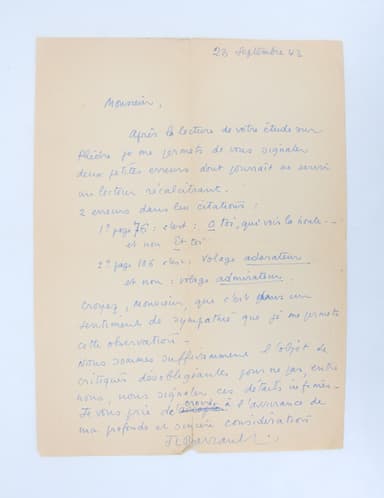 23 Septembre 43
Monsieur,
Après la lecture de votre étude sur
Phèdre je me permets de vous signaler
deux petites erreurs dont pourrait se servir
un lecteur récalcitrant.
2 erreurs dans les citations :
1° page 76 : c'est : O toi, qui vois la honte --
et non Et toi
2° page 186 c'est : Volage adorateur
et non : volage admirateur.
Croyez, Monsieur, que c'est dans un
sentiment de sympathie que je me permets
cette observation -
Nous sommes suffisamment l'objet de
critiques désobligeantes pour ne pas, entre
nous, nous signaler ces détails infimes -
Je vous prie de croire à l'assurance de
ma profonde et sincère considération
JLBarrault.